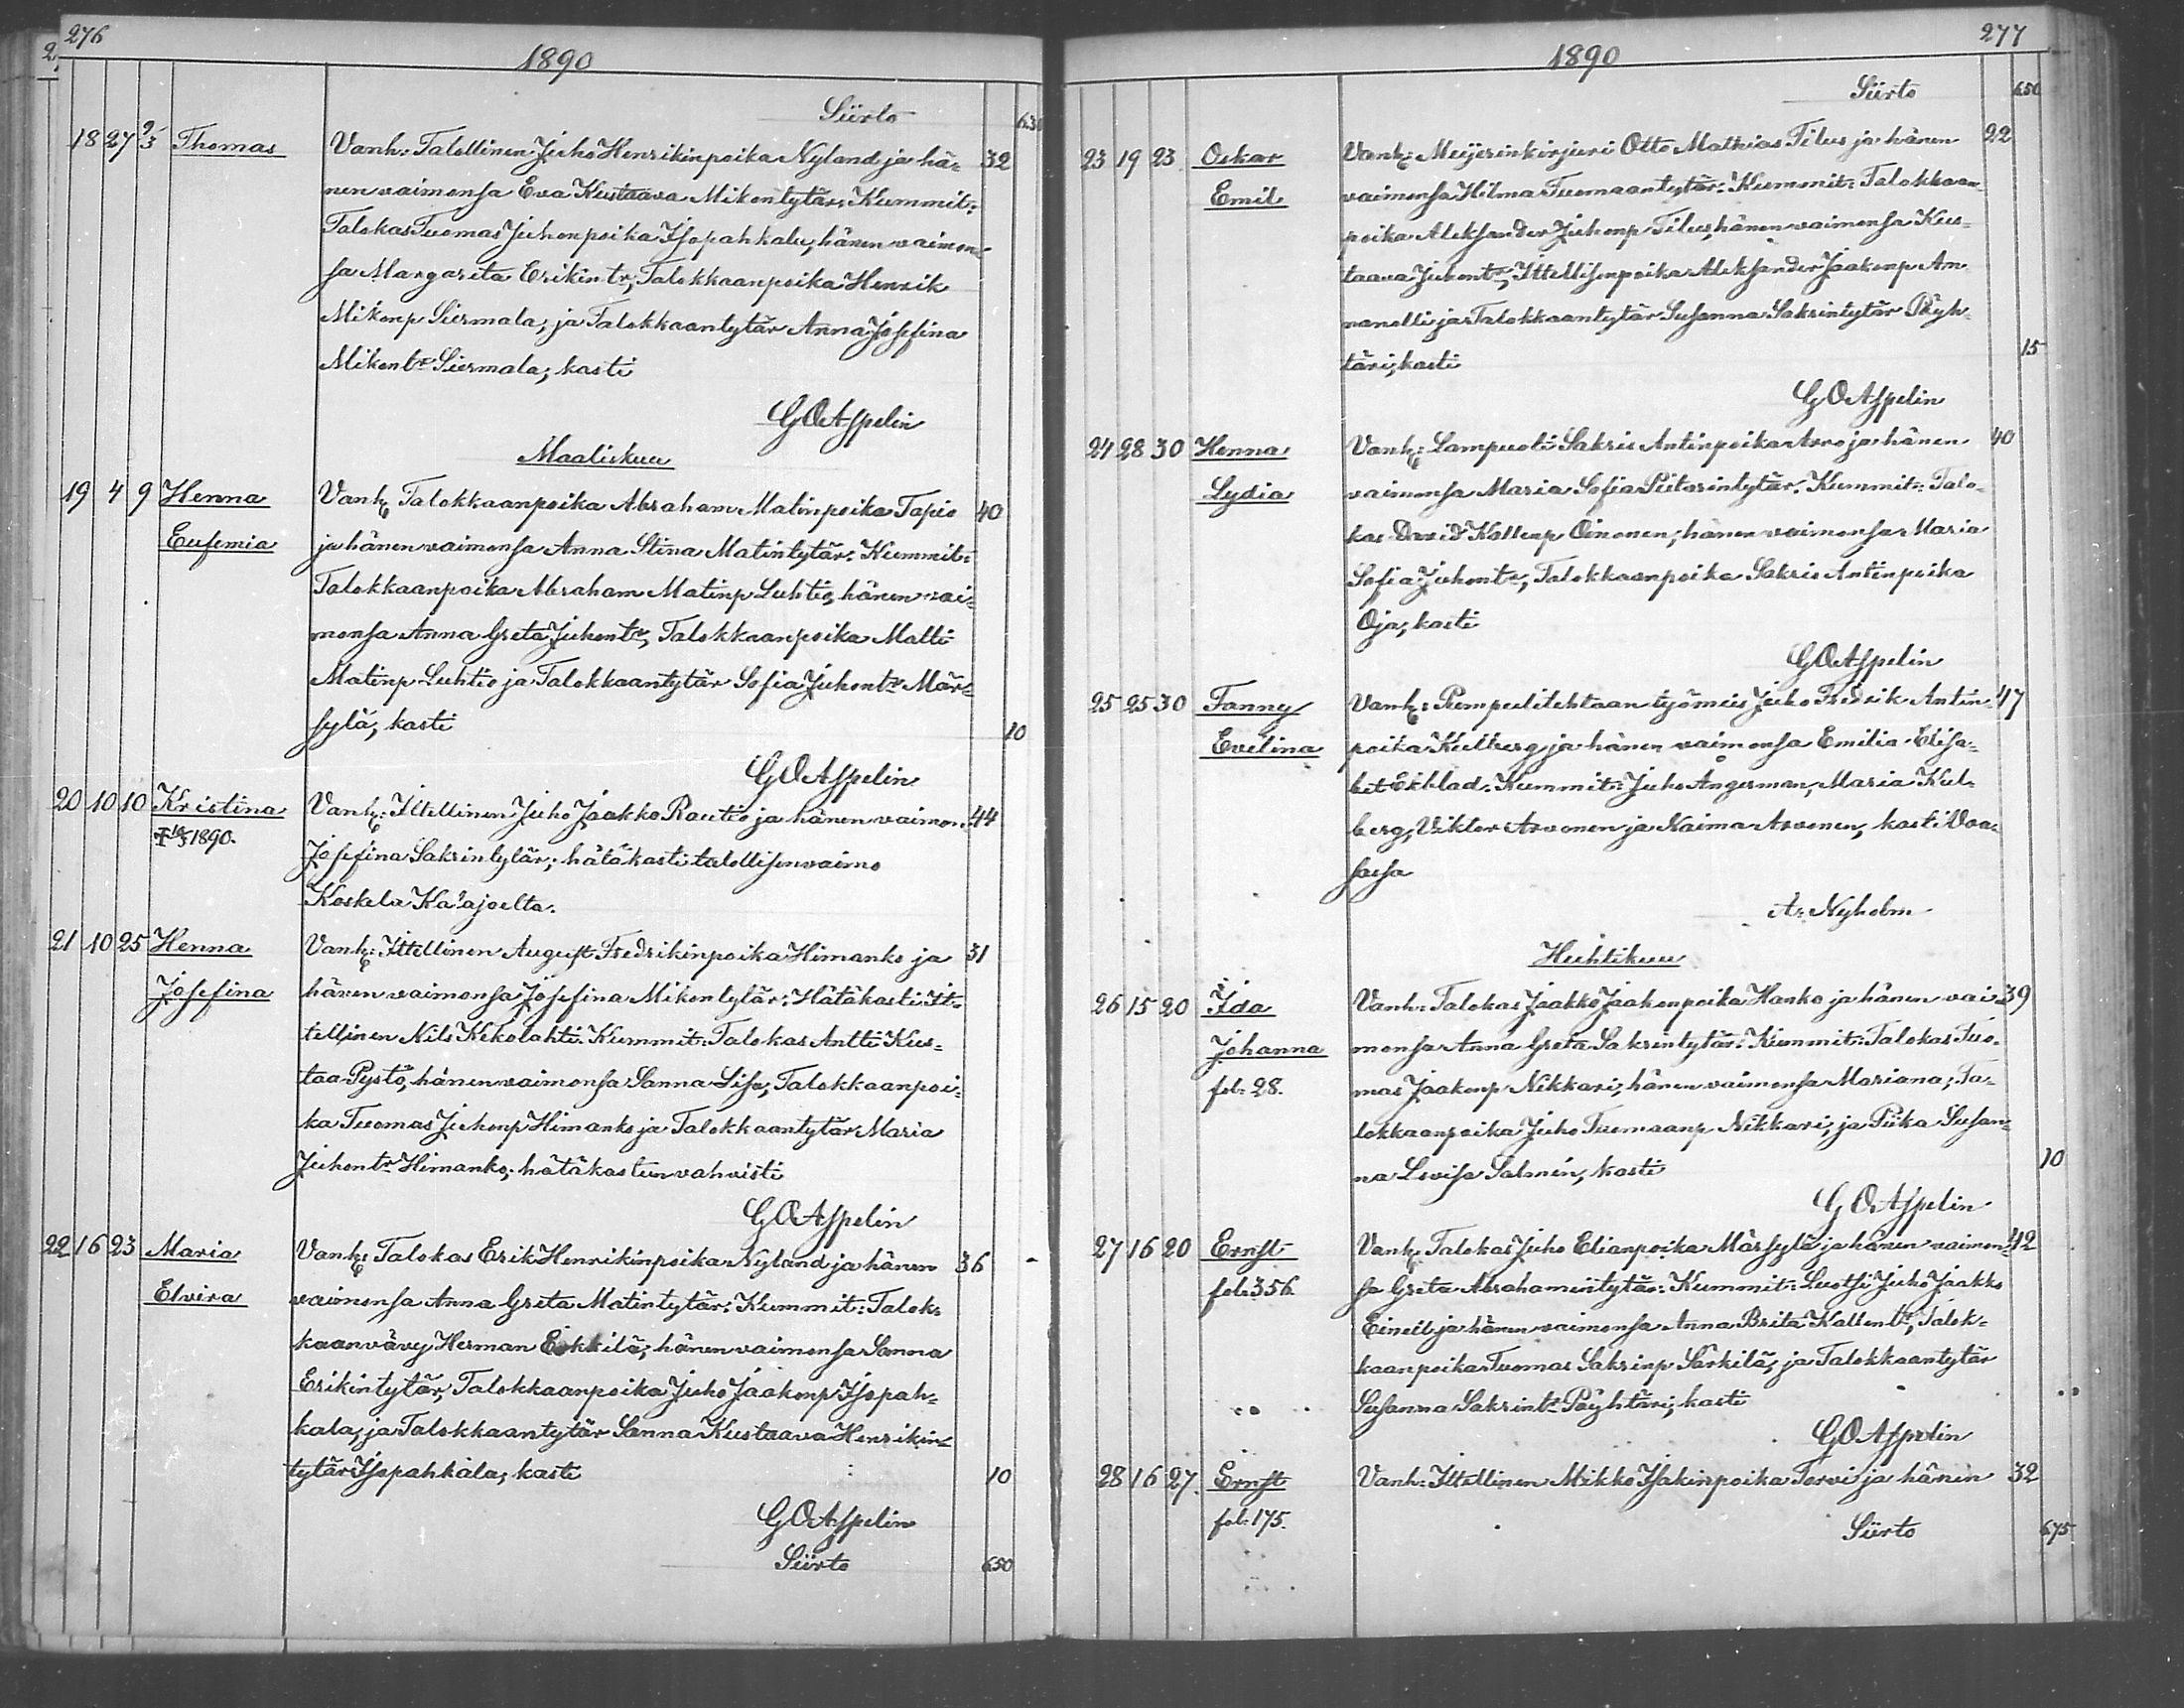 276
1890
Siirto 630
18 27 2/3 Thomas Vanh: Talollinen Juho Henrikinpoika Nyland ja hä- 32
nen vaimonsa Eva Kustaava Mikontytär: Kummit:
Talokas Tuomas Juhonpoika Isopahkala, hänen vaimon-
sa Margareta Erikintr, Talokkaanpoika Henrik
Mikonp Siermala, ja Talokkaantytär Anna Josefina
Mikontr Siermala; kasti
G O Aspelin
Maaliskuu
19 4 9 Henna Vanh: Talokkaanpoika Abraham Matinpoika Tapio 40
Eufemia ja hänen vaimonsa Anna Stina Matintytär: Kummit:
Talokkaanpoika Abraham Matinp Luhtio, hänen vai-
monsa Anna Greta Juhontr, Talokkaanpoika Matti
Matinp Luhtio ja Talokkaantytär Sofia Juhontr Mär-
sylä, kasti 10
G O Aspelin
20 10 10 Kristina Vanh: Ittellinen Juho Jaakko Rautio ja hänen vaimon 44
1890. Josefina Sakrintytär; hätäkasti talollisenvaimo
Koskela Ka'ajoelta.
21 10 25 Henna Vanh: Ittellinen August Fredrikinpoika Himanko ja 31
Josefina hänen vaimonsa Josefina Mikontytär: Hätäkasti It-
tellinen Nils Kekolahti. Kummit: Talokas Antti Kus-
taa Pystö, hänen vaimonsa Sanna Lisa, Talokkaanpoi-
ka Tuomas Juhonp Himanko ja Talokkaantytär Maria
Juhontr Himanko; hätäkasteen vahvisti
G O Aspelin
22 16 23 Maria Vanh: Talokas Erik Henrikinpoika Nyland ja hänen 36
Elvira vaimonsa Anna Greta Matintytär: Kummit: Talok-
kaanvävy Herman Eikkilä, hänen vaimonsa Sanna
Erikintytär, Talokkaanpoika Juho Jaakonp Isopah-
kala, ja Talokkaantytär Sanna Kustaava Henrikin-
tytär Isopahkala, kasti 10
G O Aspelin
Siirto 650
277
1890
Siirto 650
23 19 23 Oskar Vanh: Meijerinkirjuri Otto Mathias Tilus ja hänen 22
Emil vaimonsa Hilma Tuomaantytär: Kummit: Talokkaan-
poika Aleksander Juhonp Tilus, hänen vaimonsa Kus-
taava Juhontr, Ittellisenpoika Aleksander Jaakonp An-
nanolli ja Talokkaantytär Susanna Sakrintytär Päyh-
täri; kasti 15
G O Aspelin
24 28 30 Henna Vanh: Lampuoti Sakris Antinpoika Arvo ja hänen 40
Lydia vaimonsa Maria Sofia Piitarintytär. Kummit: Talo-
kas David Kallenp Oinonen, hänen vaimonsa Maria
Sofia Juhontr, Talokkaanpoika Sakris Antinpoika
Oja; kasti
G O Aspelin
25 25 30 Fanny Vanh: Pumpulitehtaan työmies Juho Fredrik Antin- 47
Evelina poika Kulberg ja hänen vaimonsa Emilia Elisa-
bet Ekblad. Kummit: Juho Ångerman, Maria Kul-
berg, Viktor Arvonen ja Naima Arvonen, kasti Vaa-
sassa
A. Nyholm
Huhtikuu
26 15 20 Ida Vanh: Talokas Jaakko Jaakonpoika Hanko ja hänen vai- 39
Johanna monsa Anna Greta Sakrintytär: Kummit: Talokas Tuo-
fol. 28. mas Jaakonp Nikkari, hänen vaimonsa Mariana; Ta-
lokkaanpoika Juho Tuomaanp Nikkari, ja Piika Susan-
na Lovisa Salmén, kasti 10
G O Aspelin
27 16 20 Ernst Vanh: Talokas Juho Elianpoika Märsylä ja hänen vaimon- 42
fol. 356. sa Greta Abrahamintytär: Kummit: Luotsi Juho Jaakko
Eineil ja hänen vaimonsa Anna Brita Kallentr, Talok-
kaanpoika Tuomas Sakrinp Särkilä, ja Talokkaantytär
Susanna Sakrintr Päyhtäri, kasti
G O Aspelin
28 16 27 Ernst Vanh: Ittellinen Mikko Isakinpoika Torvi ja hänen 32
fol. 175. Siirto 675